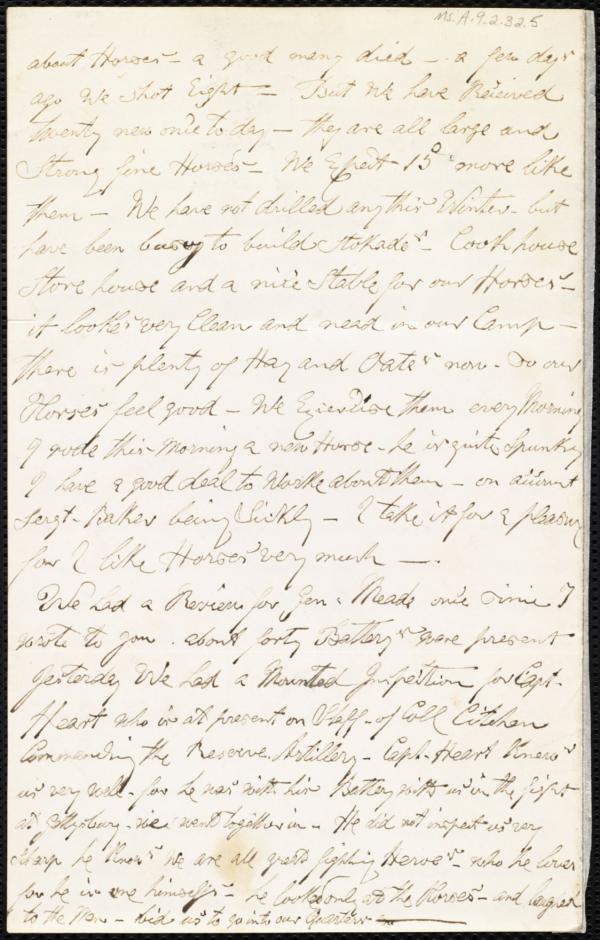 Ms. A. 9. 2. 32. 5
about Horses - a good many died - a few days
ago We shot Eight - But we have Received
twenty new once to day - they are all large and
Strong fine Horses - We Expect 15 more like
them - We have not drilled any this Winter - but
have been busy to build Stokades - Cook house
Store house and a nice Stable for our Horses -
it lookes very Clean and nead in our Camp -
there is plenty of Hay and Oates now - So our
Horses feel good - We Exercise them every Morning
I rode this Morning a new Horse - he is quite Spunky
I have a good deal to Worke about them - on account
Sergt. Baker being Sickly - I take it for a pleasure
for I like Horses very much -
We had a Review for Gen: Meade once since I
wrote to you. about forty Batterys were present
Yesterday We had a Mounted Inspection for Capt.
Heart who is at present on Staff of Coll
Commanding the Reserve Artillery - Capt. Heart Knows
us very well - for he was with his Battery with us in the fight
at Gettysburg - we went together in - He did not inspect us very
sharp he Knows We are all great fighting Heroes - who he loves
for he is one himself - he looked only at the Horses - and laughed
to the Men - bid us to go into our Quarters -